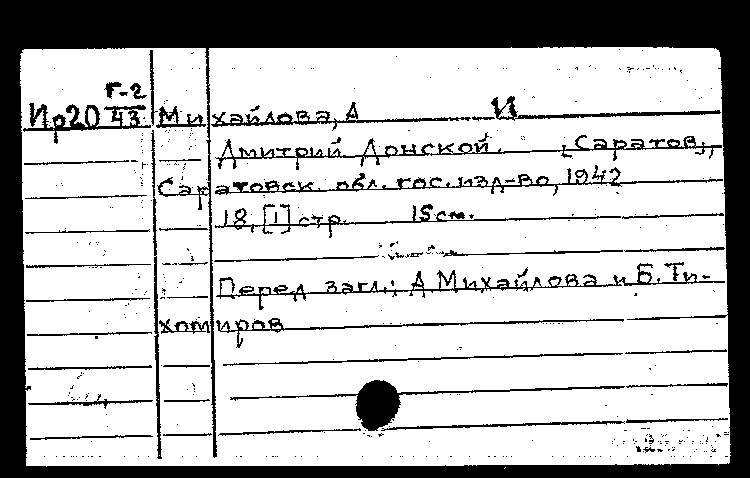 Г-2
Ир20 43 Михайлова, А И
Дмитрий Донской. [Саратов],
Саратовск. обл. гос. изд-во, 1942
18, [1] стр. 15 см.
Перед загл.: А. Михайлова и Б. Ти-
хомиров